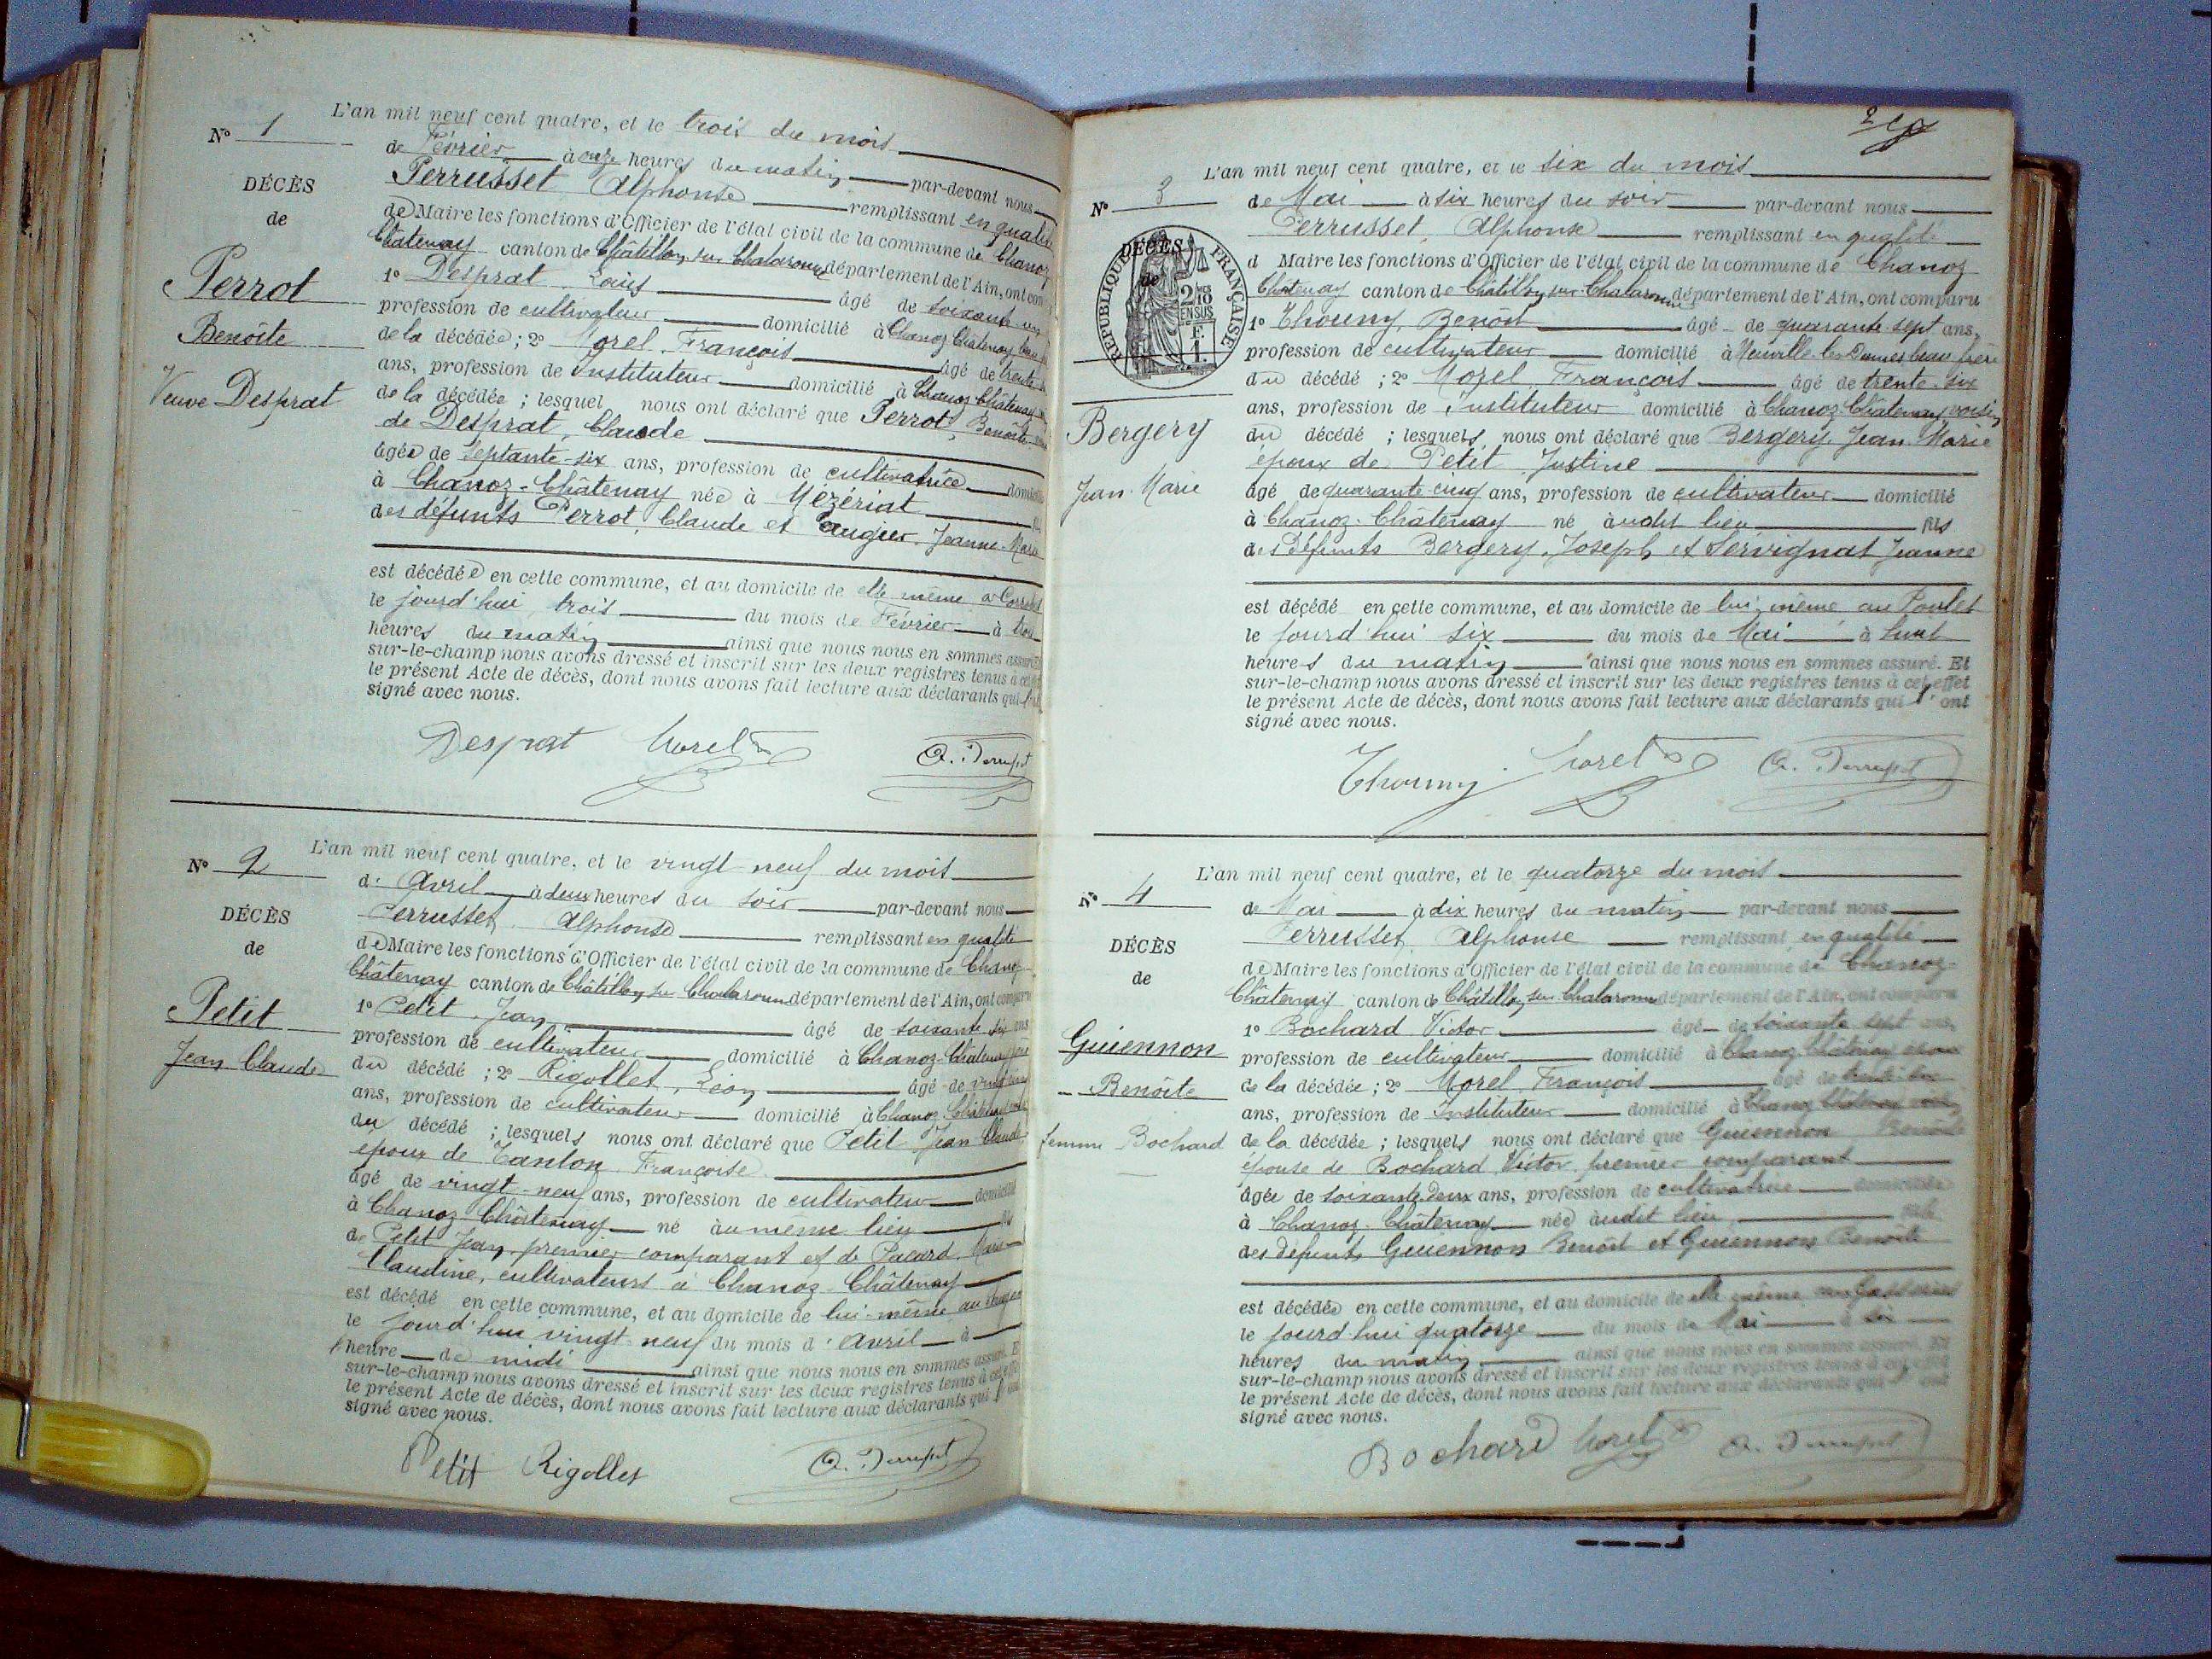 L'an mil neuf cent quatre, et le trois du mois
N° 1
de Février à onze heures du matin par-devant nous
DÉCÈS
Perrusset Alphonse remplissant en qualité
de
de Maire les fonctions d'Officier de l'état civil de la commune de Chanoz
Châtenay canton de Châtillon sur Chalaronne département de l'Ain, ont com
Perrot
1° Desprat, Louis âgé de soixante
Benoîte
profession de cultivateur domicilié à Chanoz Châtenay
Veuve Desprat
de la décédée; 2° Morel, François âgé de trente
ans, profession de Instituteur domicilié à Chanoz Châtenay
de la décédée; lesquel nous ont déclaré que Perrot, Benoîte
de Desprat, Claude
âgée de septante-six ans, profession de cultivatrice domicilié
à Chanoz-Châtenay née à Mézériat
des défunts Perrot, Claude et Augier, Jeanne-Marie
est décédée en cette commune, et au domicile de elle même à
le jourd'hui trois du mois de Février à trois
heures du matin ainsi que nous nous en sommes assuré
sur-le-champ nous avons dressé et inscrit sur les deux registres tenus à cet
le présent Acte de décès, dont nous avons fait lecture aux déclarants qui
signé avec nous.
Desprat Morel A. Perrusset
L'an mil neuf cent quatre, et le vingt-neuf du mois
N° 2
d'Avril à deux heures du soir par-devant nous
DÉCÈS
Perrusset, Alphonse remplissant en qualité
de
de Maire les fonctions d'Officier de l'état civil de la commune de Chanoz
Châtenay canton de Châtillon sur Chalaronne département de l'Ain, ont comparu
Petit
1° Petit, Jean âgé de soixante six ans
Jean Claude
profession de cultivateur domicilié à Chanoz-Châtenay
du décédé; 2° Rigollet, Léon âgé de vingt
ans, profession de cultivateur domicilié à Chanoz Châtenay
du décédé; lesquels nous ont déclaré que Petit Jean Claude
époux de Tanton Françoise
âgé de vingt-neuf ans, profession de cultivateur domicilié
à Chanoz Châtenay né au même lieu fils
de Petit Jean, premier comparant et de Pacard, Marie
Claudine, cultivateurs à Chanoz-Châtenay
est décédé en cette commune, et au domicile de lui-même au
le jourd'hui vingt-neuf du mois d'Avril à
heure de midi ainsi que nous nous en sommes assuré. Et
sur-le-champ nous avons dressé et inscrit sur les deux registres tenus à cet effet
le présent Acte de décès, dont nous avons fait lecture aux déclarants qui ont
signé avec nous.
Petit Rigollet A. Perrusset
2
L'an mil neuf cent quatre, et le six du mois
N° 3
de Mai à six heures du soir par-devant nous
DÉCÈS
Perrusset, Alphonse remplissant en qualité
de
d Maire les fonctions d'Officier de l'état civil de la commune de Chanoz
RÉPUBLIQUE FRANÇAISE
Châtenay canton de Châtillon sur Chalaronne département de l'Ain, ont comparu
2/10 EN SUS
1° Thouny, Benoît âgé de quarante-sept ans,
profession de cultivateur domicilié à Neuville-les-Dames beau frère
du décédé; 2° Morel, François âgé de trente-six
ans, profession de Instituteur domicilié à Chanoz-Châtenay, voisin
Bergery
du décédé; lesquels nous ont déclaré que Bergery Jean-Marie
époux de Petit Justine
Jean-Marie
âgé de quarante-cinq ans, profession de cultivateur domicilié
à Chanoz-Châtenay né audit lieu fils
des défunts Bergery, Joseph et Servignat Jeanne
est décédé en cette commune, et au domicile de lui-même au Poulet
le jourd'hui six du mois de Mai à huit
heures du matin ainsi que nous nous en sommes assuré. Et
sur-le-champ nous avons dressé et inscrit sur les deux registres tenus à cet effet
le présent Acte de décès, dont nous avons fait lecture aux déclarants qui ont
signé avec nous.
Thouny Morel A. Perrusset
L'an mil neuf cent quatre, et le quatorze du mois
N° 4
de Mai à dix heures du matin par-devant nous
DÉCÈS
Perrusset, Alphonse remplissant en qualité
de
de Maire les fonctions d'Officier de l'état civil de la commune de Chanoz-
Châtenay canton de Châtillon sur Chalaronne département de l'Ain, ont comparu
1° Bochard Victor âgé de soixante sept ans,
Guiennon
profession de cultivateur domicilié à Chanoz Châtenay époux
Benoîte
de la décédée; 2° Morel, François âgé de trente six
ans, profession de Instituteur domicilié à Chanoz Châtenay
femme Bochard
de la décédée; lesquels nous ont déclaré que Guiennon Benoîte
épouse de Bochard, Victor, premier comparant
âgée de soixante-deux ans, profession de cultivatrice domiciliée
à Chanoz-Châtenay née audit lieu
des défunts Guiennon Benoît et Guiennon Benoîte
est décédée en cette commune, et au domicile de elle même
le jourd'hui quatorze du mois de Mai à six
heures du matin ainsi que nous nous en sommes assuré. Et
sur-le-champ nous avons dressé et inscrit sur les deux registres tenus à cet effet
le présent Acte de décès, dont nous avons fait lecture aux déclarants qui ont
signé avec nous.
Bochard Morel A. Perrusset